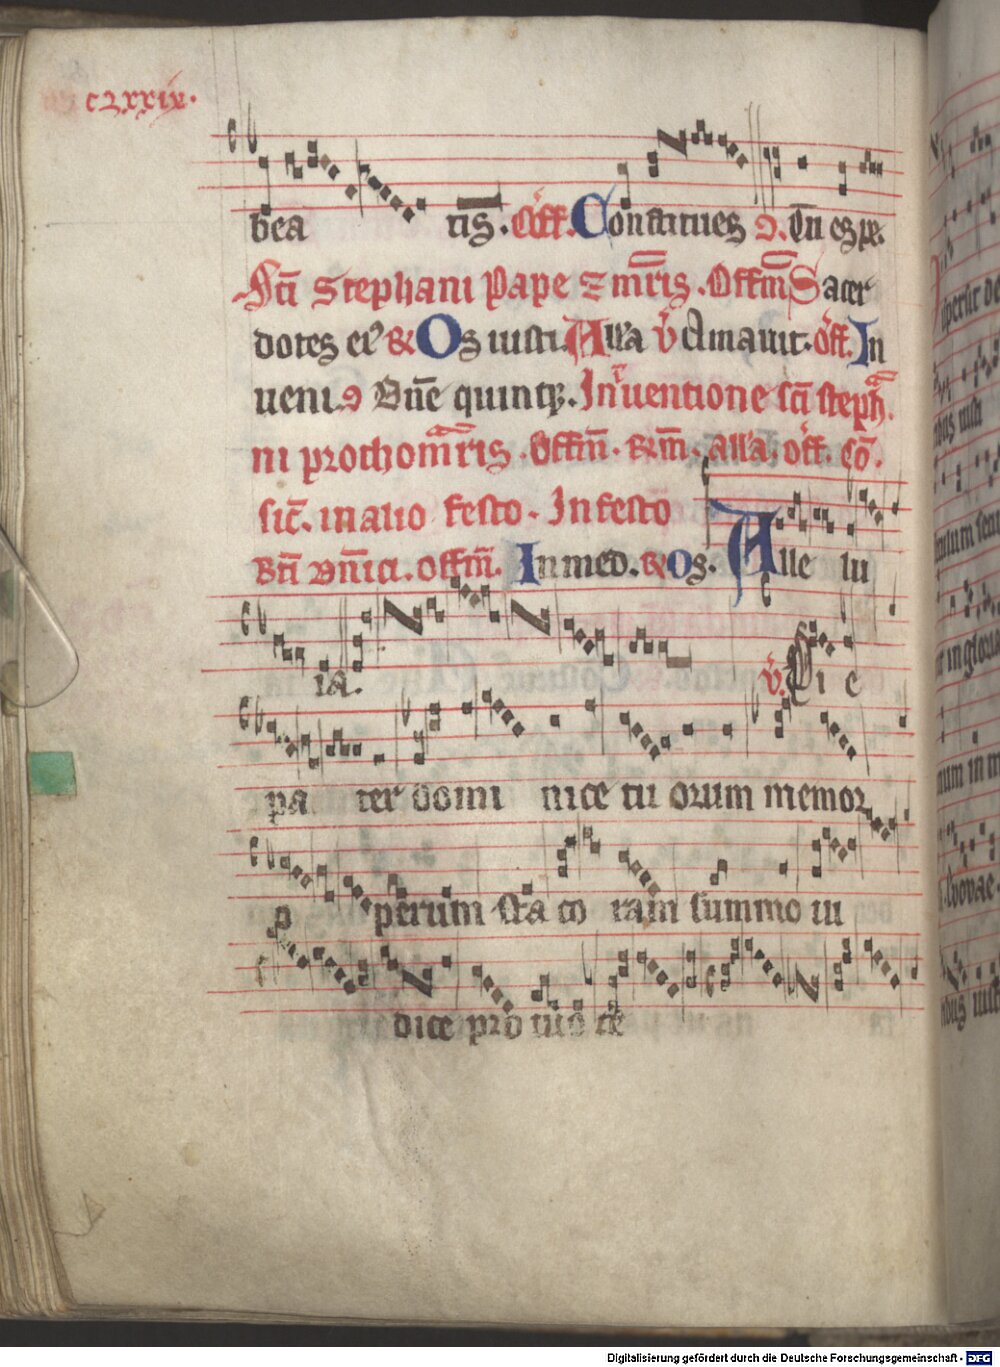 clxxix.
bea tis. Off. Constitues ꝯ. Tu es pe.
Sc̄i Stephani Pape ⁊ mr̄ris. Offm̄ Sacer
dotes ei⁹ & Os iusti. Alla v̄ Amauit. off. In
ueni. ꝯ Dn̄e quinqꝫ. Inuentione sc̄i steph
ni prothomr̄ris. Offm̄. Rm̄. alla. off. Cō.
sic̄. in alio festo. In festo
Bt̄i Dn̄ici. offm̄. In med. & Os. Alle lu
ia. v̄. Pi e
pa ter domi nice tu orum memor
o perum sta co ram summo iu
dice pro tuo ce
Digitalisierung gefördert durch die Deutsche Forschungsgemeinschaft - DFG